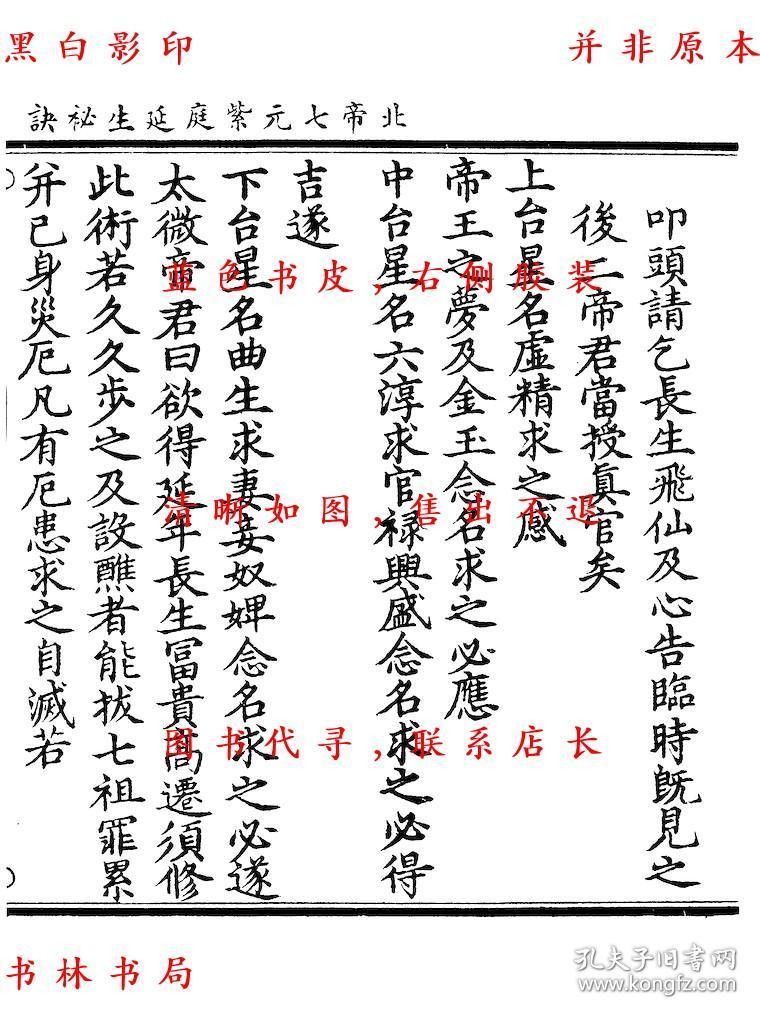 黑白影印
并非原本
北帝七元紫庭延生祕訣
叩頭請乞長生飛仙及心告臨時既見之
後二帝君當授真官矣
上台星名虛精求之感
帝王之夢及金玉念名求之必應
中台星名六淳求官禄興盛念名求之必得
吉遂
下台星名曲生求妻妾奴婢念名求之必遂
太微帝君曰欲得延年長生冨貴高遷須修
此術若久久步之及設醮者能拔七祖罪累
并己身災厄凡有厄患求之自滅若
蓝色书皮,右侧胶装
清晰如图,售出不退
图书代寻,联系店长
书林书局
孔夫子旧书网
www.kongfz.com